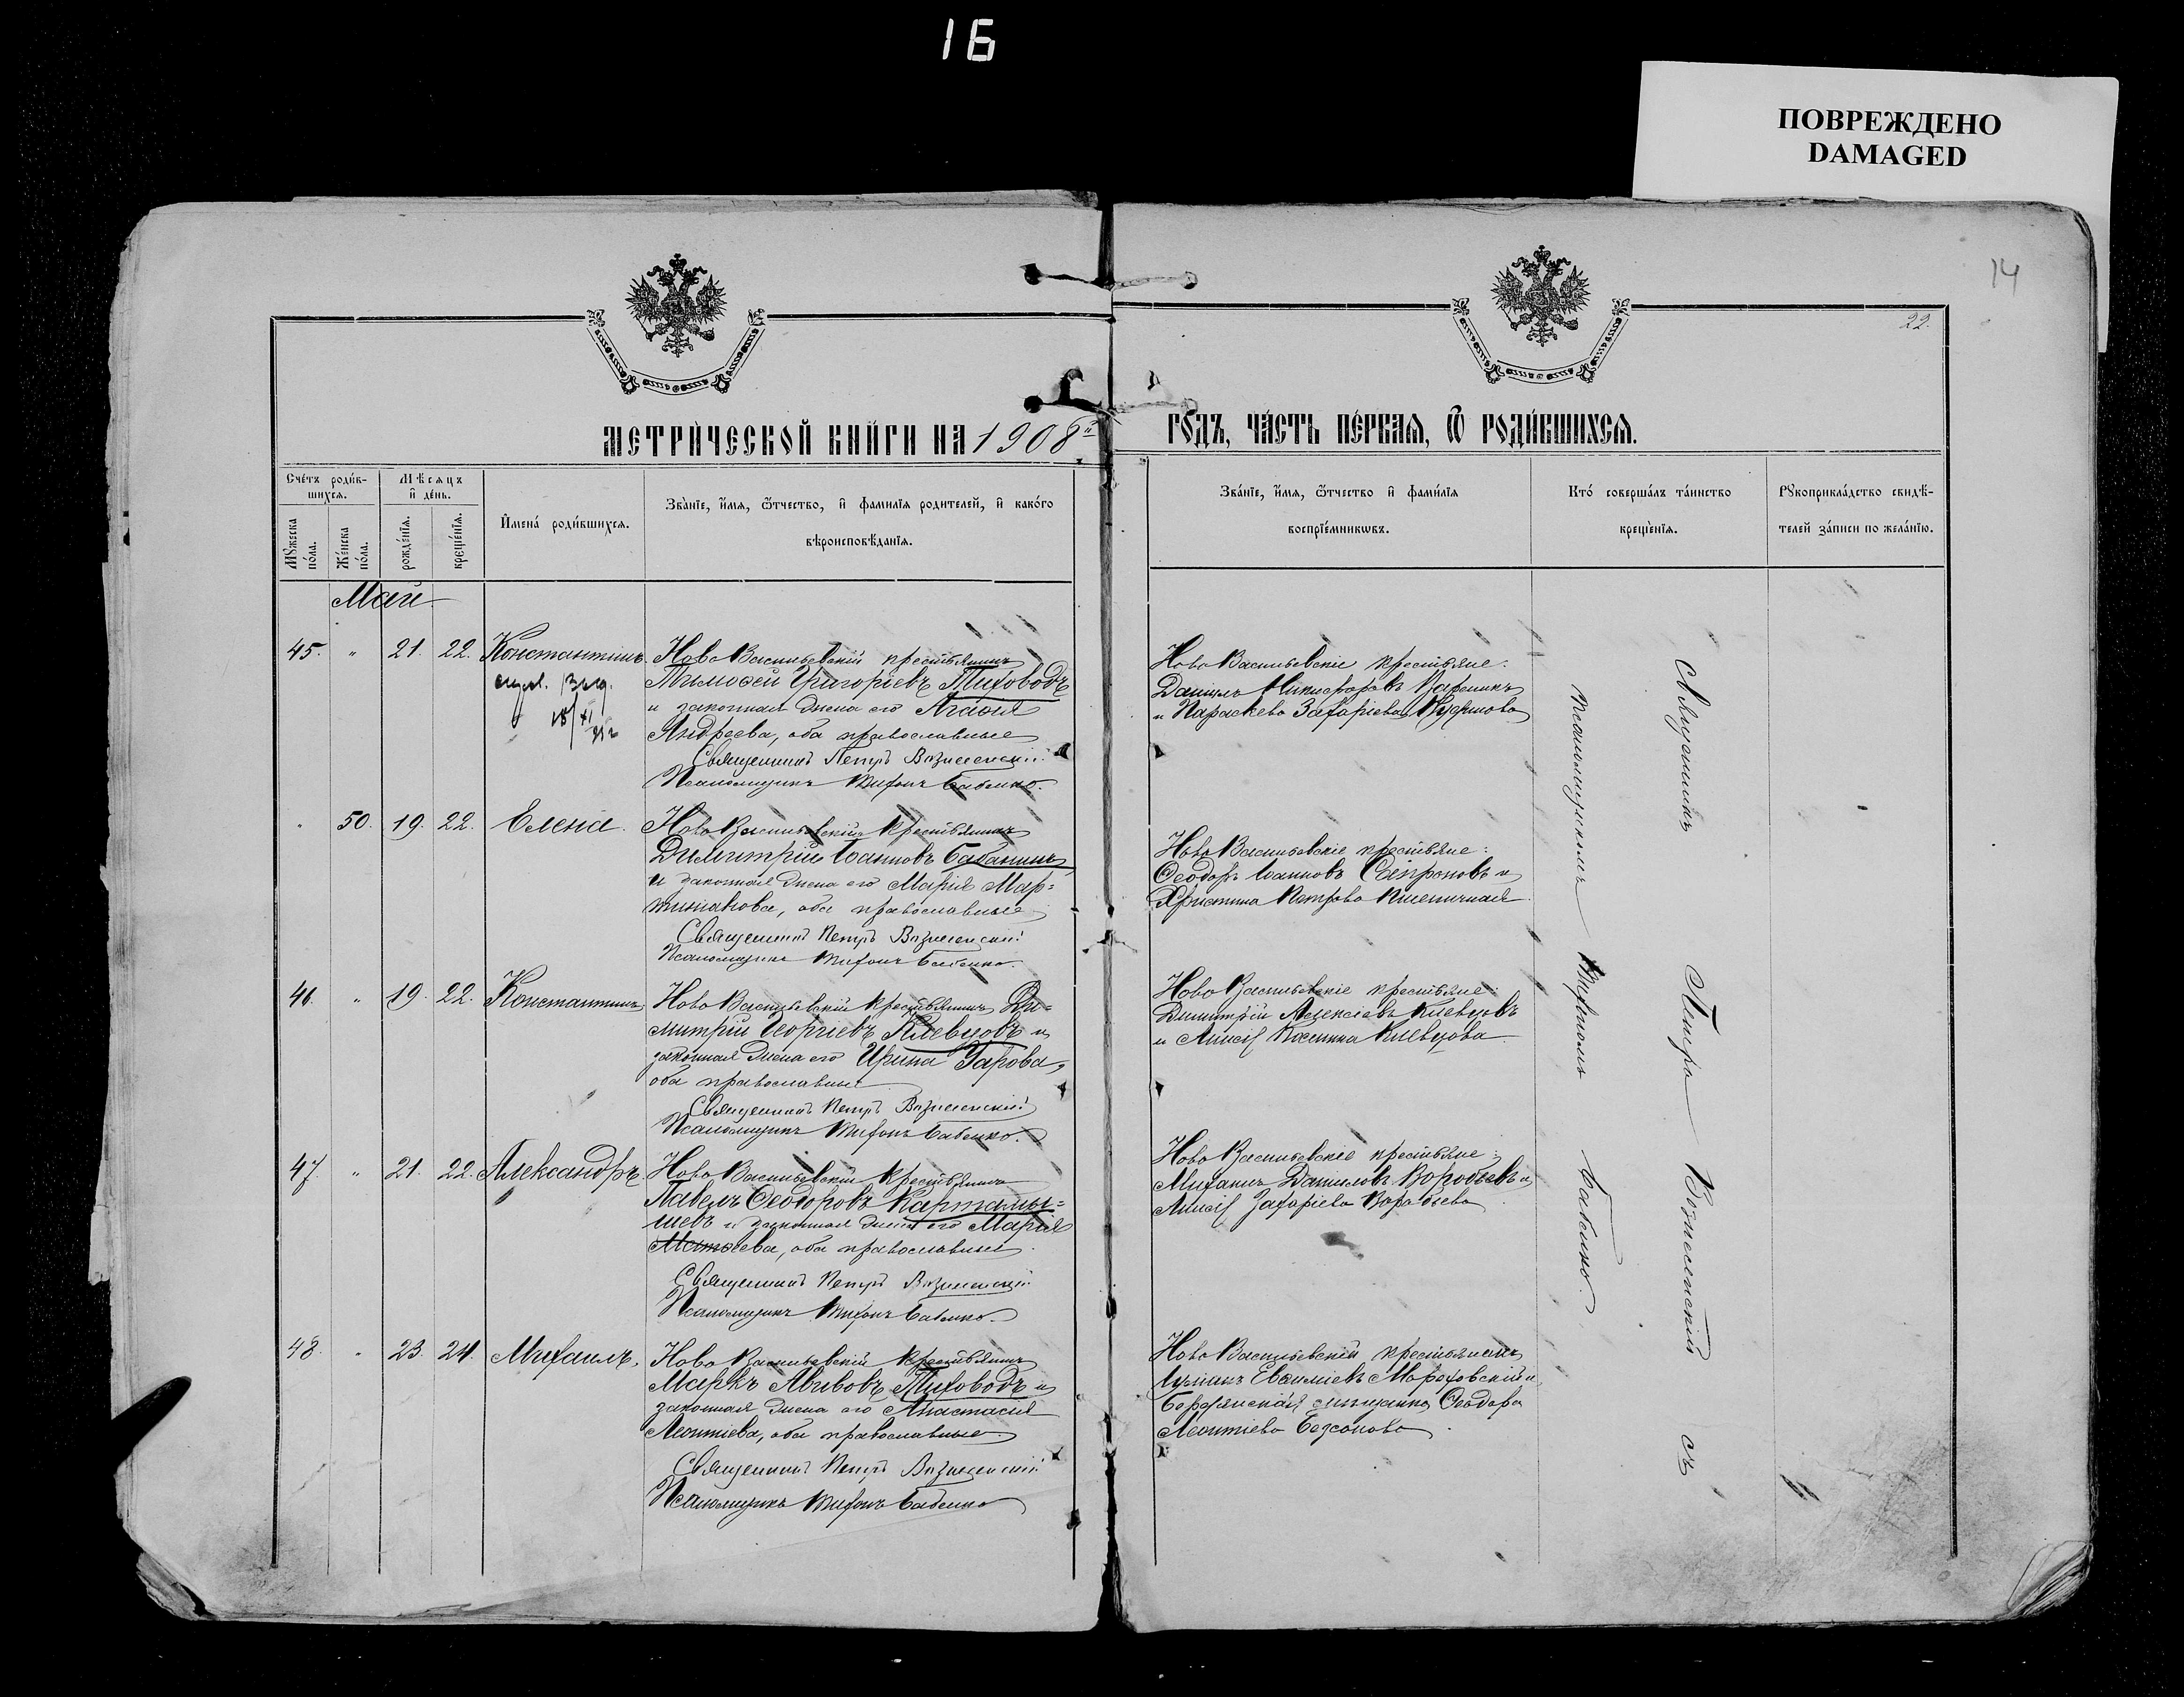 16
ПОВРЕЖДЕНО
DAMAGED
14
22.
МЕТРИ́ЧЕСКОЙ КНИ́ГИ НА 1908й
ГОДЪ, ЧА́СТЬ ПЕ́РВАѦ, Ѿ РОДИ́ВШИХСѦ.
Сче́тъ роди́в-
шихсѧ.
Мѣсѧцъ
и҆ де́нь.
Мꙋжеска
по́ла.
Же́нска
по́ла.
рожде́нїѧ.
креще́нїѧ.
И҆мена́ роди́вшихсѧ.
Зва́нїе, и҆́мѧ, ѻ҆́тчество, и҆ фами́лїѧ родителей, и҆ како́го
вѣроисповѣ́данїѧ.
Зва́нїе, и҆́мѧ, ѻ҆́тчество и҆ фами́лїѧ
воспрїе́мникѡвъ.
Кто́ соверша́лъ та́инство
креще́нїѧ.
Рꙋкоприкла́дство свидѣ́-
телей за́писи по жела́нїю.
Май
45. " 21. 22. Константинъ.
18/XI
Ново Васильевскій крестьянинъ
Тимоѳей Григоріевъ Тиховодъ
и законная жена его Агаѳія
Андреева, оба православные
Священникъ Петръ Вознесенскій
Псаломщикъ Тифонъ Бабенко.
Ново Васильевскіе крестьяне:
Даніилъ Никифоровъ
и Параскева Захаріева
" 50. 19. 22. Елена.
Ново Васильевскій крестьянинъ
Димитрій Іоанновъ Бабанинъ
и законная жена его Марія Мар=
тиніанова, оба православные
Священникъ Петръ Вознесенскій
Псаломщикъ Тифонъ Бабенко.
Ново Васильевскіе крестьяне:
Ѳеодоръ Іоанновъ Сапроновъ и
Христина Петрова Пшеничная
46. " 19. 22. Константинъ
Ново Васильевскій крестьянинъ Ди=
митрій Георгіевъ Клевцовъ и
законная жена его Ирина Уарова,
оба православные
Священникъ Петръ Вознесенскій
Псаломщикъ Тифонъ Бабенко.
Ново Васильевскіе крестьяне:
Димитрій Алексіевъ Клевцовъ
и Анисія Космина Клевцова
47. " 21. 22. Александръ
Ново Васильевскій крестьянинъ
Павелъ Ѳеодоровъ Картамы=
шевъ и законная жена его Марія
Матѳеева, оба православные
Священникъ Петръ Вознесенскій
Псаломщикъ Тифонъ Бабенко.
Ново Васильевскіе крестьяне:
Михаилъ Даниловъ Воробьевъ и
Анисія Захаріева Воробьева
48. " 23. 24. Михаилъ.
Ново Васильевскій крестьянинъ
Маркъ Авивовъ Тиховодъ и
законная жена его Анастасія
Леонтіева, оба православные
Священникъ Петръ Вознесенскій
Псаломщикъ Тифонъ Бабенко
Ново Васильевскій крестьянинъ
Евѳиміевъ Мороховскій и
Бердянская мѣщанка Ѳеодора
Леонтіева Безсонова
Священникъ Петръ Вознесенскій съ
псаломщикомъ Тифономъ Бабенко.